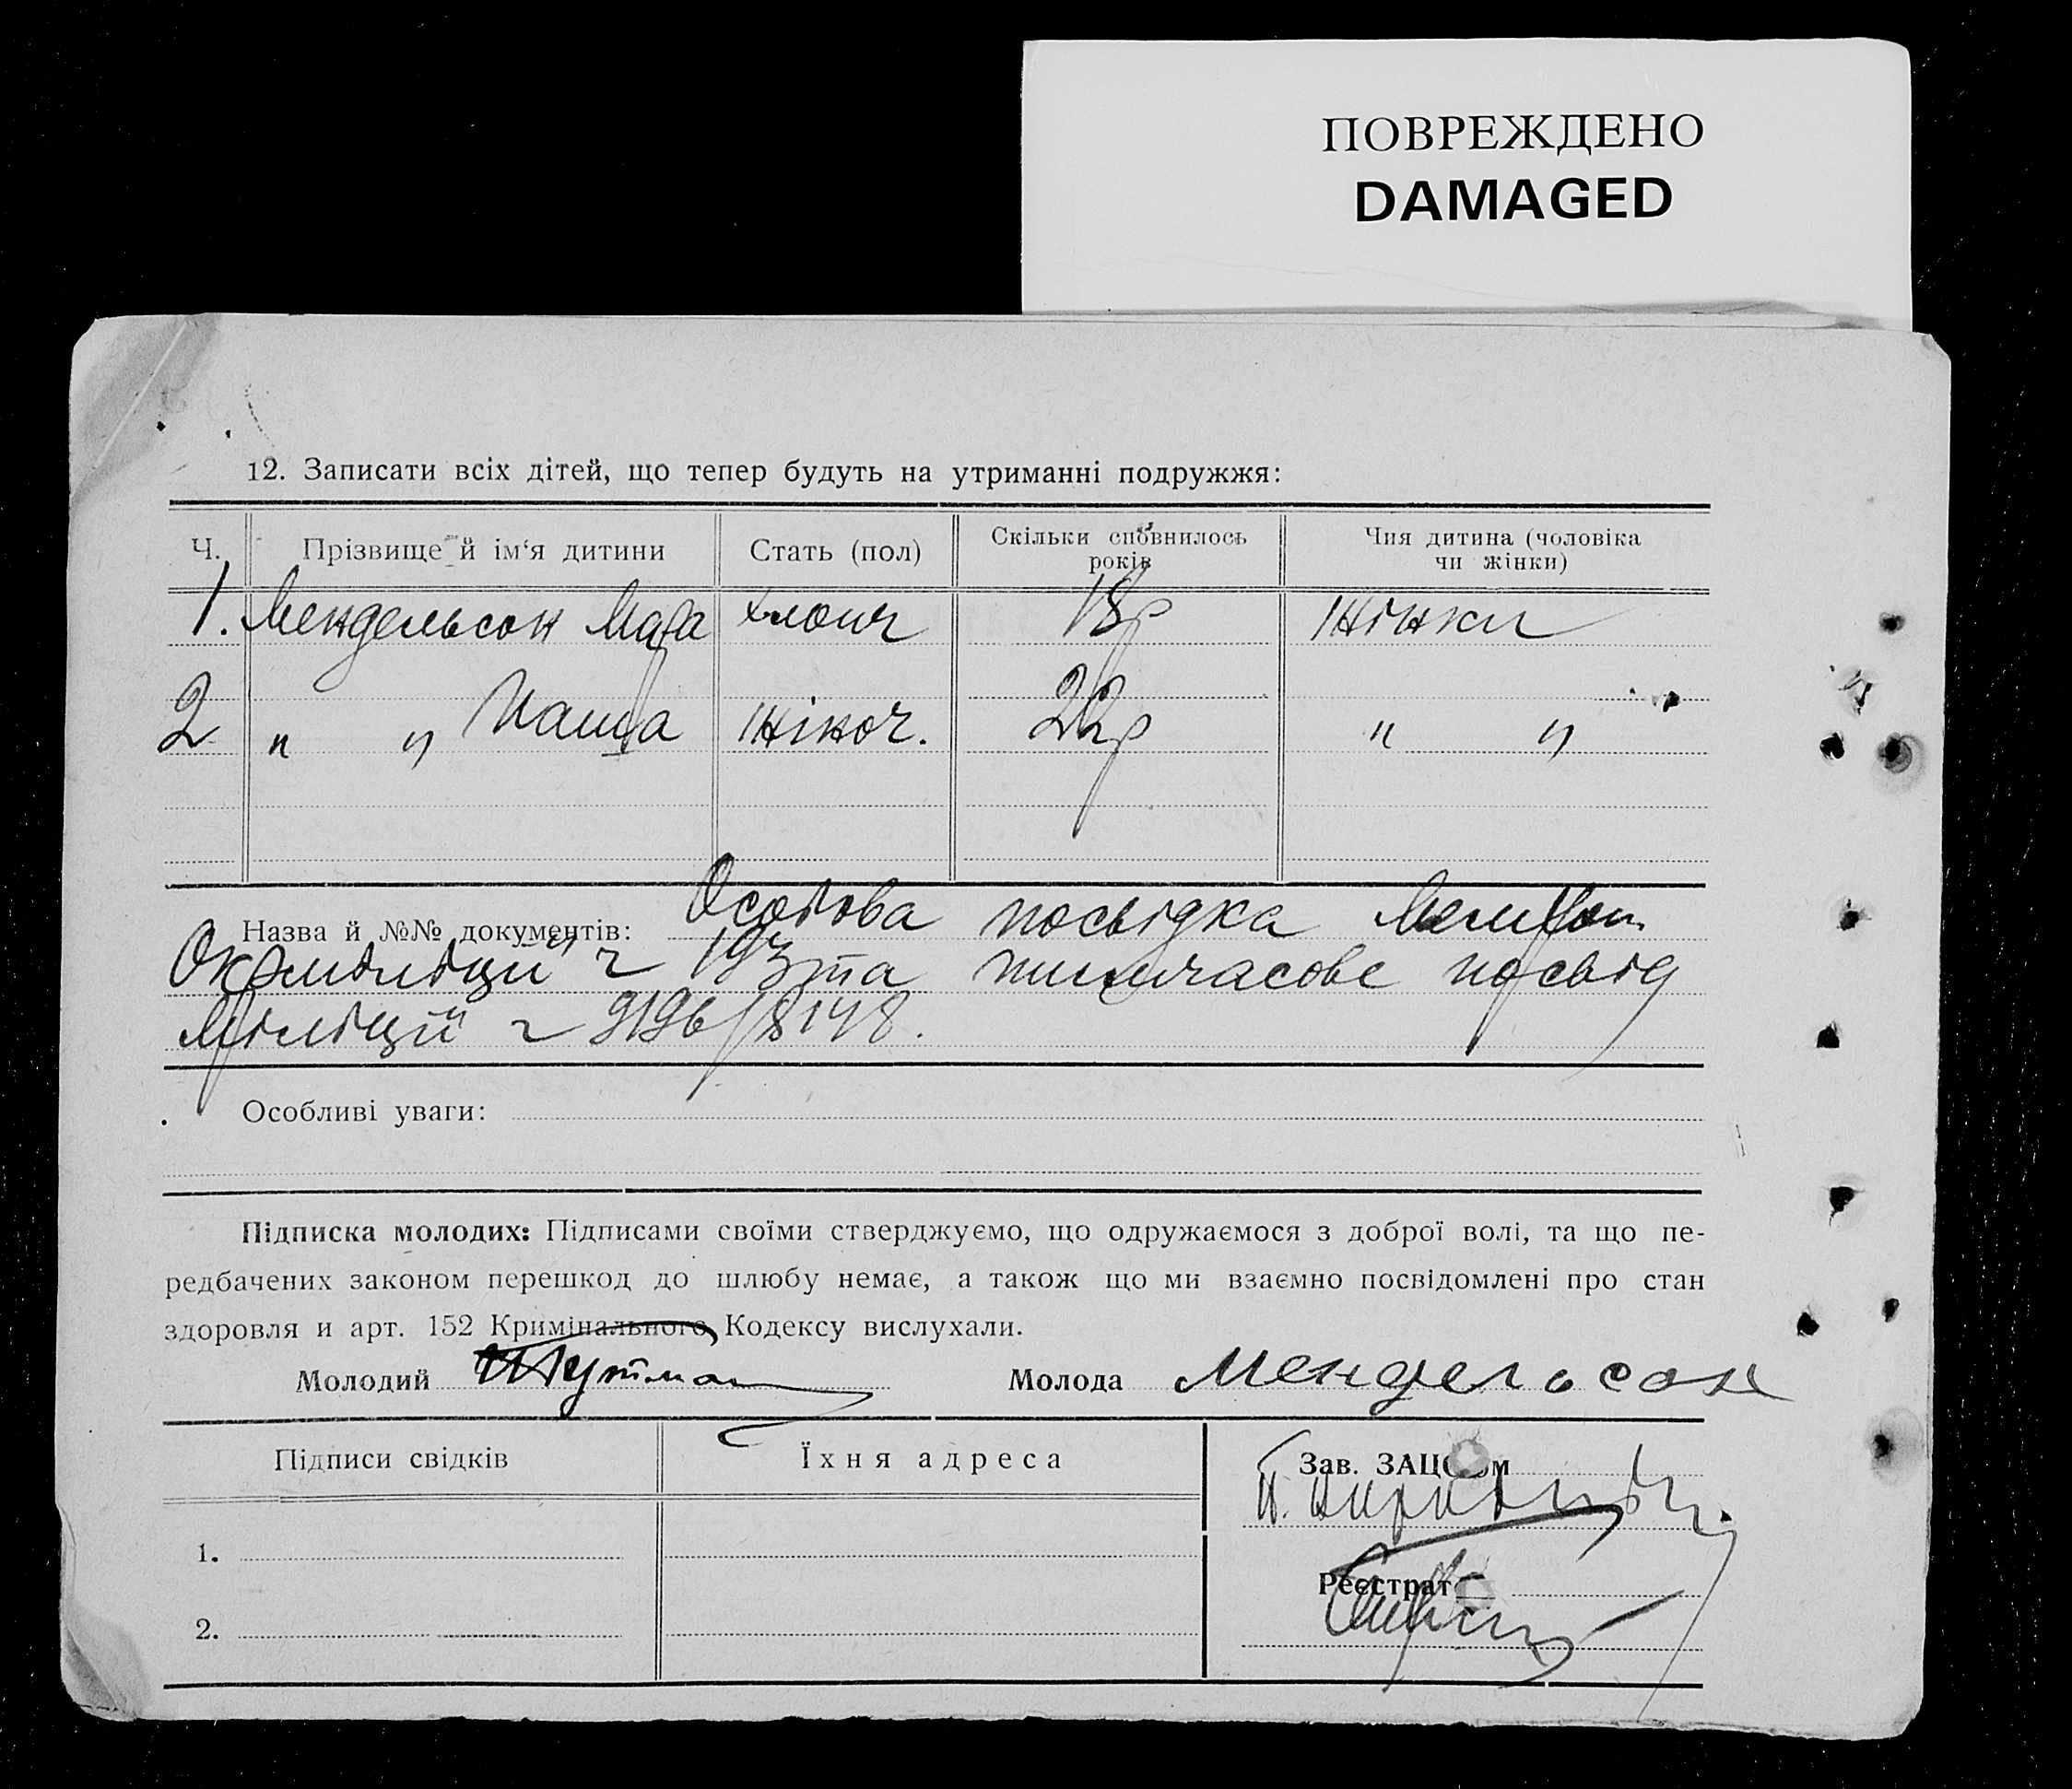 ПОВРЕЖДЕНО
DAMAGED
12. Записати всіх дітей, що тепер будуть на утриманні подружжя:
Ч. Прізвище й ім'я дитини Стать (пол) Скільки сповнилось років Чия дитина (чоловіка чи жінки)
1. Мендельсон хлопч 18р жінки
2 " " Паша жіноч. 22р " "
Назва й №№ документів: Особова посвідка
Окрміліції ч 193 та тимчасове посвід
Міліції ч 9196/8148.
Особливі уваги:
Підписка молодих: Підписами своїми стверджуємо, що одружаємося з доброї волі, та що пе-
редбачених законом перешкод до шлюбу немає, а також що ми взаємно посвідомлені про стан
здоровля и арт. 152 Кримінального Кодексу вислухали.
Молодий Молода Мендельсон
Підписи свідків Їхня адреса Зав. ЗАЦСом
1.
Реєстрат
2.